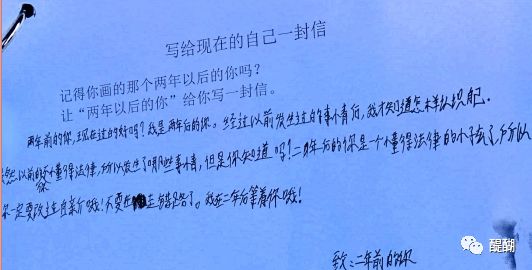 写给现在的自己一封信
记得你画的那个两年以后的你吗？
让“两年以后的你”给你写一封信。
两年前的你，现在过的好吗？我是两年后的你。经过以前发生过的事小青后，我才知道怎样认识自己。
然以前的你不懂得法律，所以发生了哪些事情，但是你知道吗？二年后的你是一个懂得法律的小孩了，所以
你一定要改过自新哦！不要在走错路了。我在二年后等着你哦！
致：二年前的你
醍醐